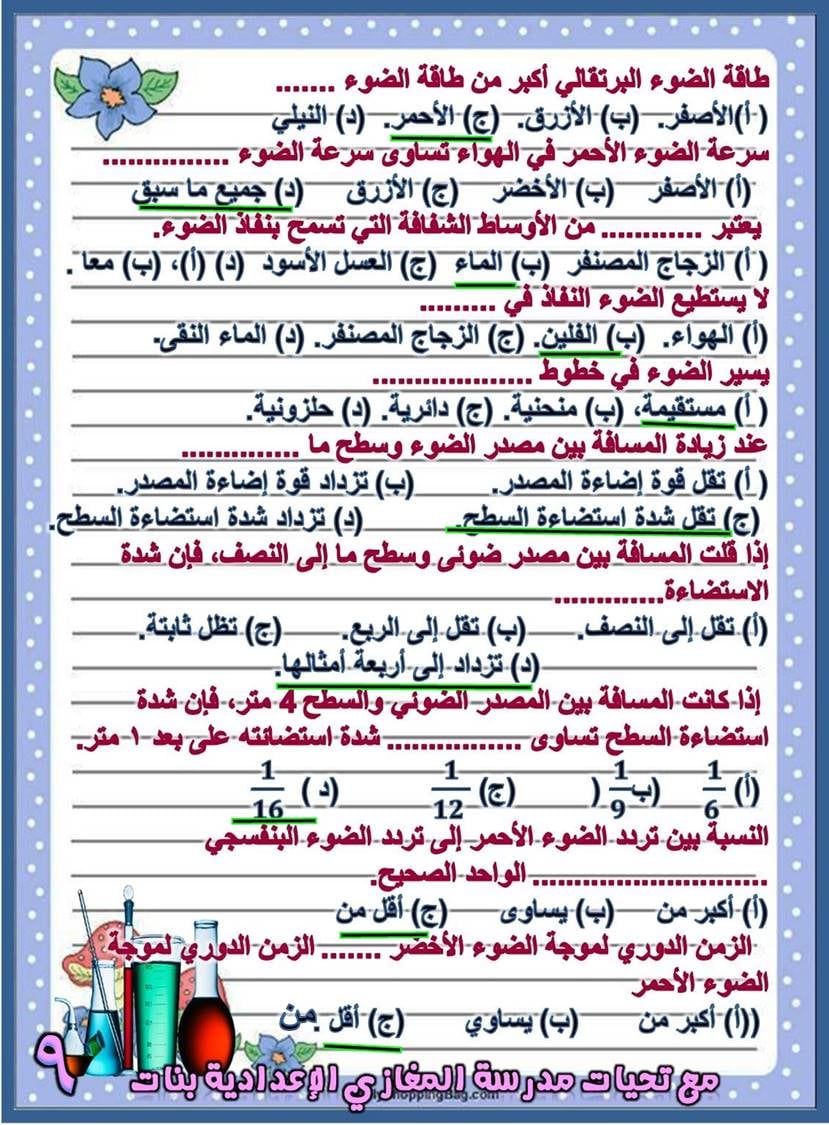 طاقة الضوء البرتقالي أكبر من طاقة الضوء .......
( أ)الأصفر. (ب) الأزرق. (ج) الأحمر. (د) النيلي
سرعة الضوء الأحمر في الهواء تساوى سرعة الضوء ...............
(أ) الأصفر (ب) الأخضر (ج) الأزرق (د) جميع ما سبق
يعتبر ............ من الأوساط الشفافة التي تسمح بنفاذ الضوء.
( أ) الزجاج المصنفر (ب) الماء (ج) العسل الأسود (د) (أ)، (ب) معا .
لا يستطيع الضوء النفاذ في .........
(أ) الهواء. (ب) الفلين. (ج) الزجاج المصنفر. (د) الماء النقى.
يسير الضوء في خطوط ...................
( أ) مستقيمة، (ب) منحنية. (ج) دائرية. (د) حلزونية.
عند زيادة المسافة بين مصدر الضوء وسطح ما ..............
( أ) تقل قوة إضاءة المصدر. (ب) تزداد قوة إضاءة المصدر.
(ج) تقل شدة استضاءة السطح. (د) تزداد شدة استضاءة السطح.
إذا قلت المسافة بين مصدر ضوئى وسطح ما إلى النصف، فإن شدة
الاستضاءة.............
(أ) تقل إلى النصف. (ب) تقل إلى الربع. (ج) تظل ثابتة.
(د) تزداد إلى أربعة أمثالها.
إذا كانت المسافة بين المصدر الضوئي والسطح 4 متر، فإن شدة
استضاءة السطح تساوى ................ شدة استضائته على بعد ١ متر.
(أ) 1/6 (ب 1/9 ) (ج) 1/12 (د ) 1/16
النسبة بين تردد الضوء الأحمر إلى تردد الضوء البنفسجي
............................ الواحد الصحيح.
(أ) أكبر من (ب) يساوى (ج) أقل من
الزمن الدوري لموجة الضوء الأخضر ....... الزمن الدوري لموجة
الضوء الأحمر
((أ) أكبر من (ب) يساوي (ج) أقل من.
مع تحيات مدرسة المغازي الإعدادية بنات
٩